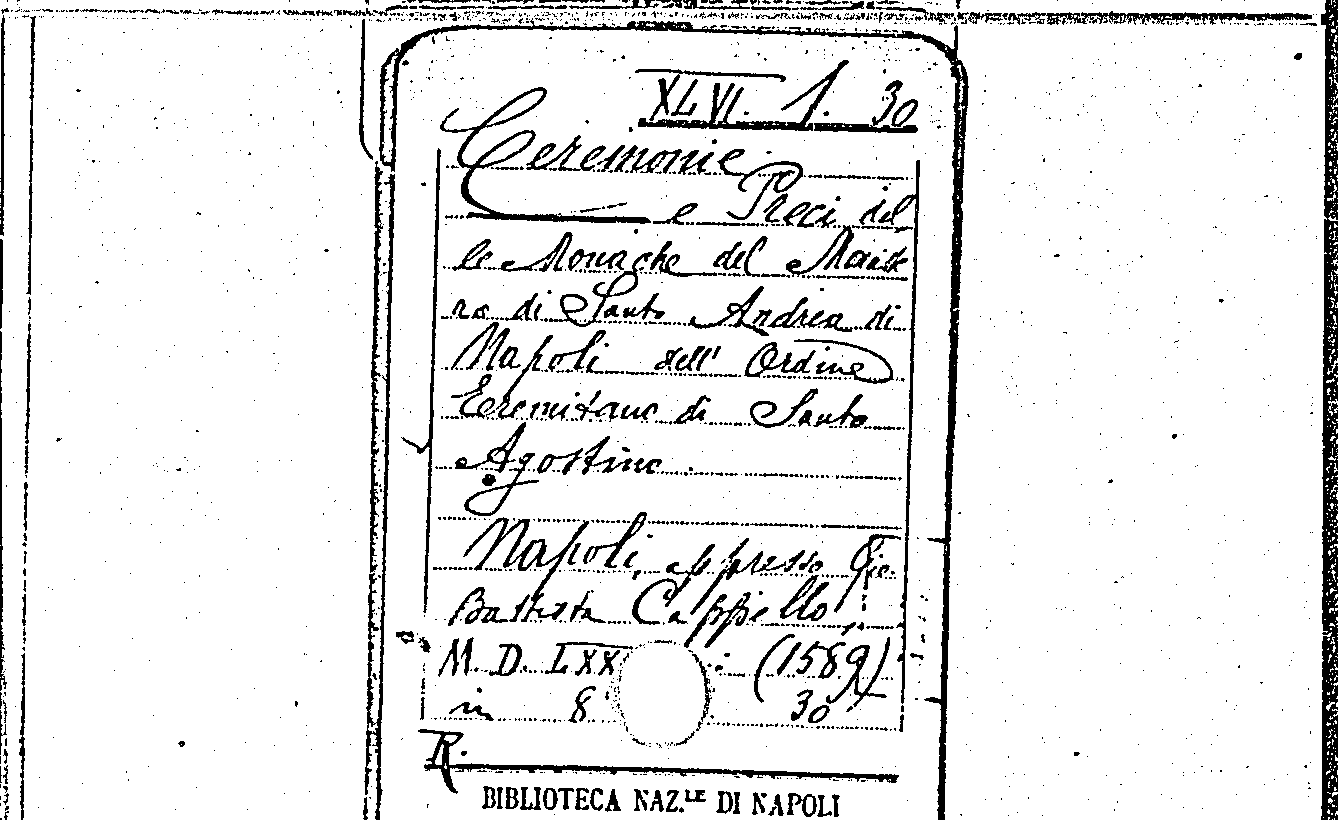 XLVI. 1. 30
Ceremonie
e Preci del
le Monache del Monste
ro di Santo Andrea di
Napoli dell' Ordine
Eremitano di Santo
Agostino.
Napoli, appresso Gio.
Battista Cappello,
M. D. LXX (1589)
in 8 30
R.
BIBLIOTECA NAZ.LE DI NAPOLI